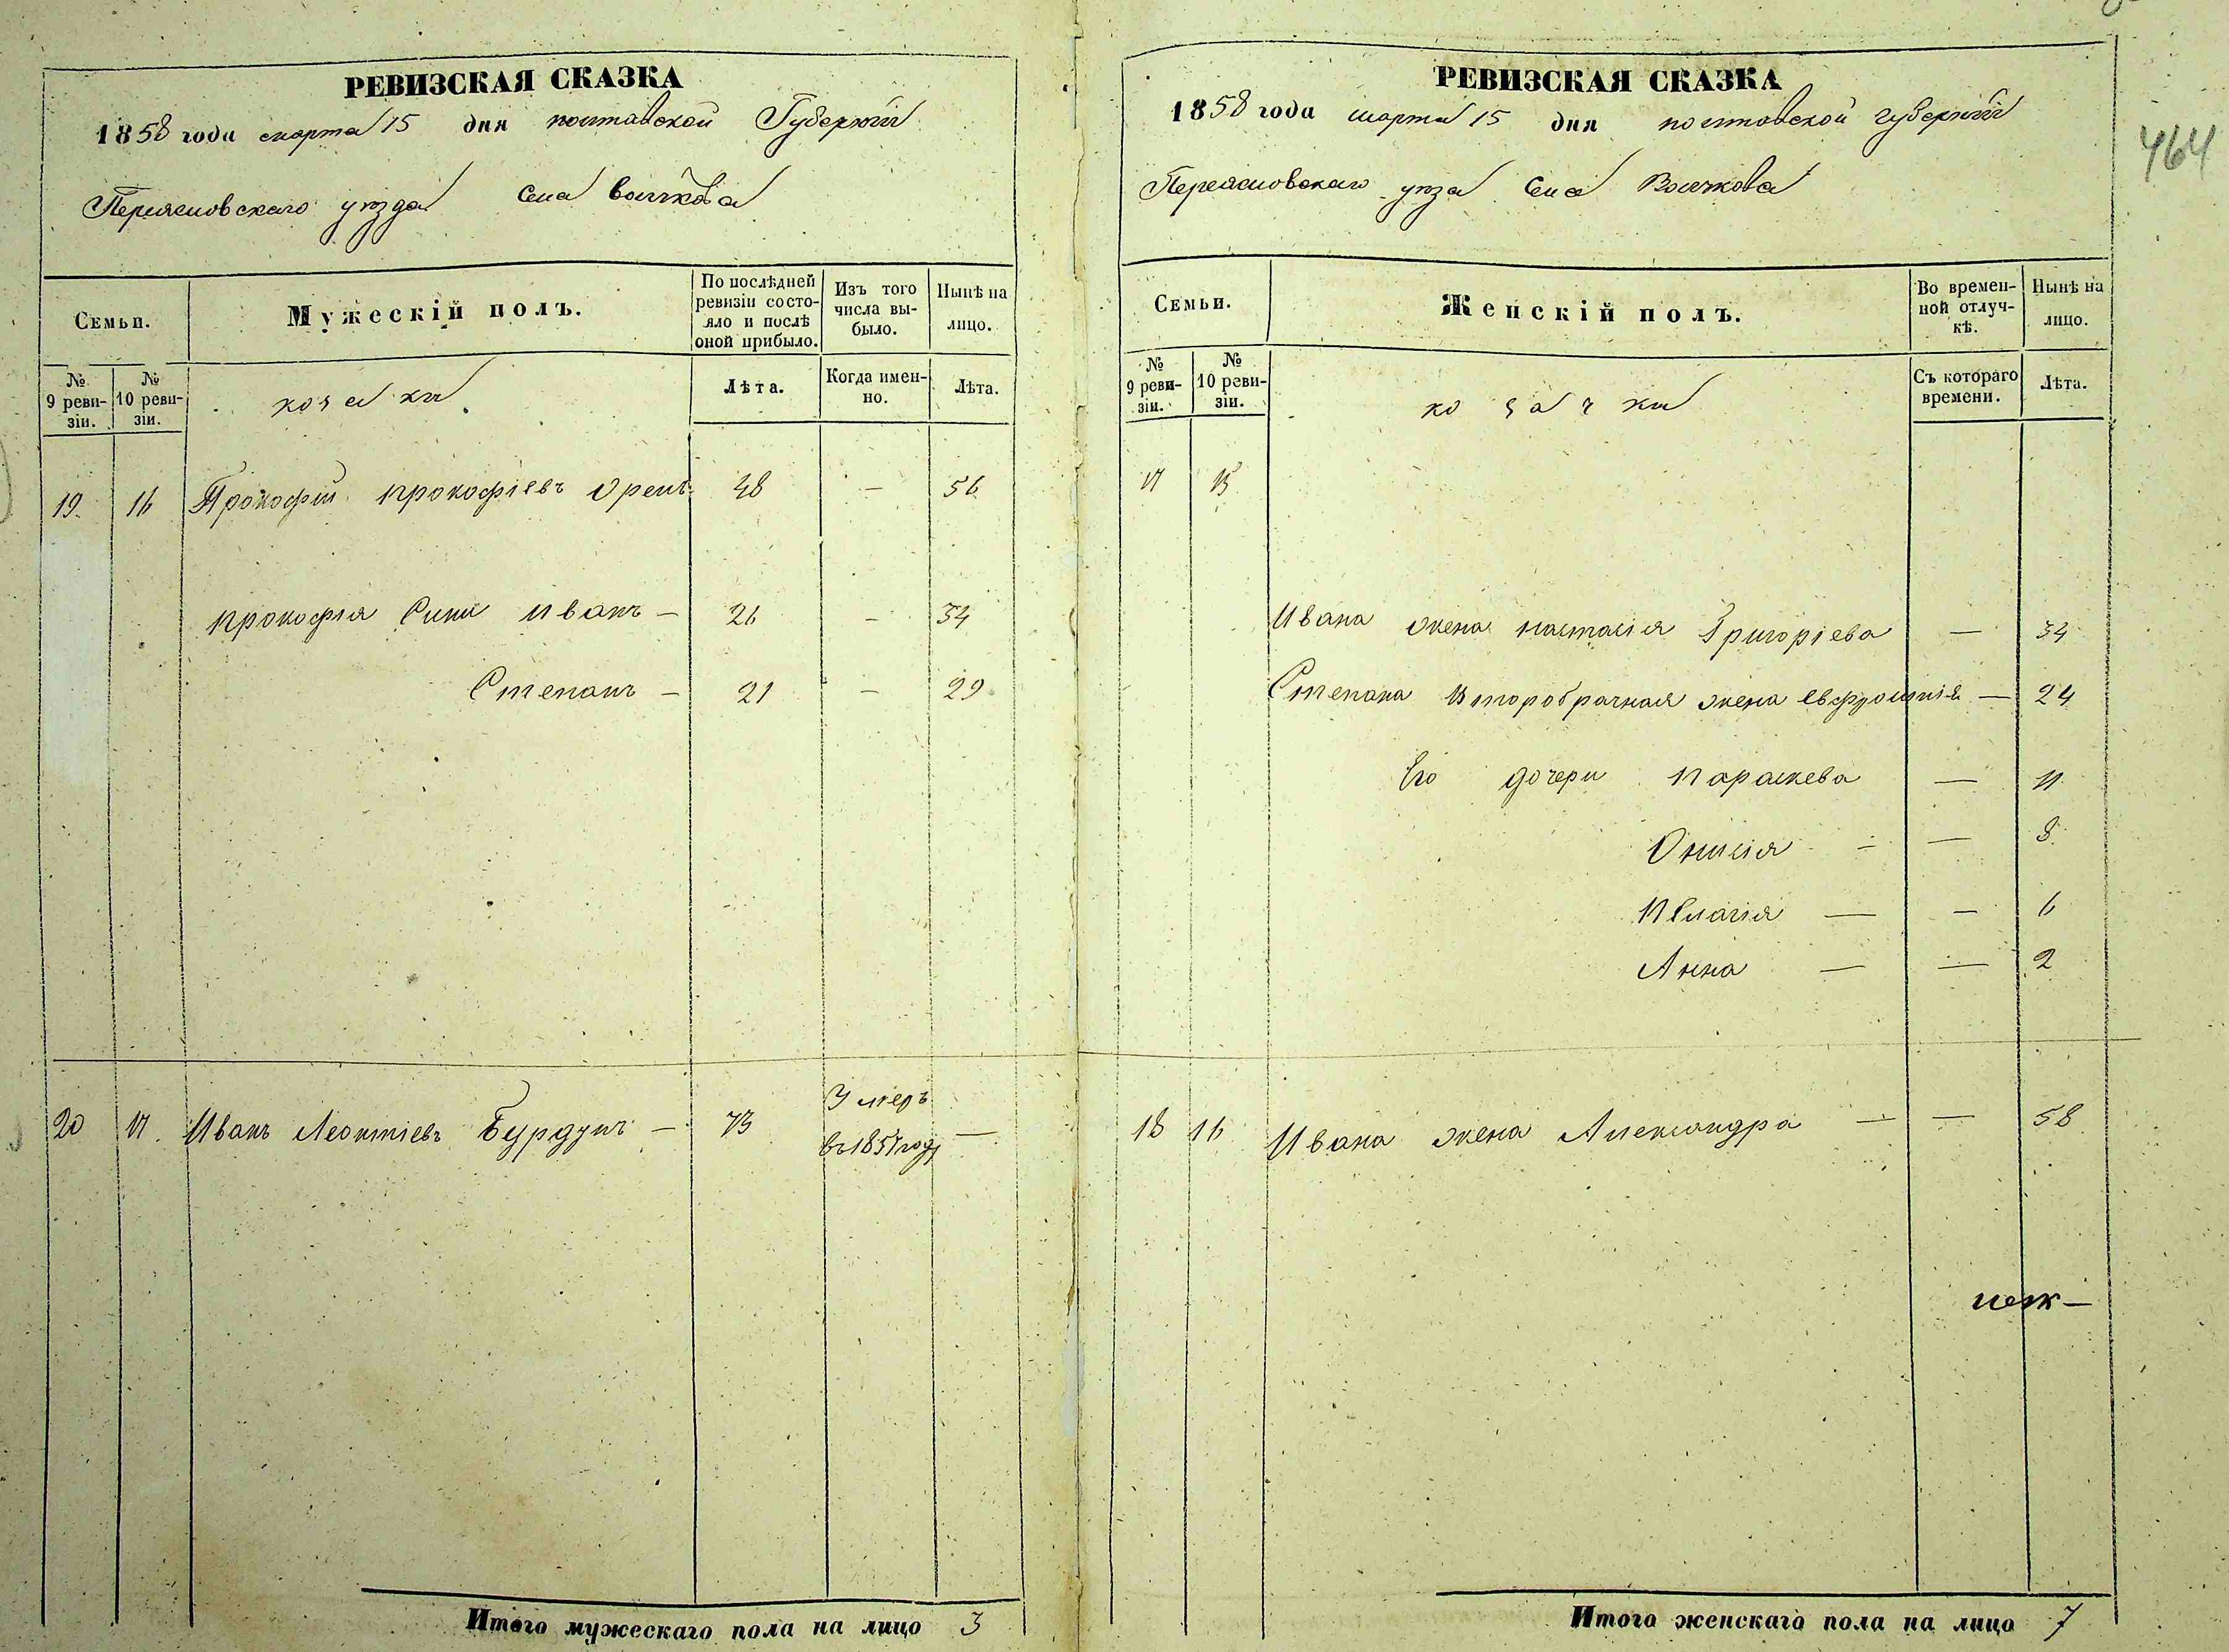 РЕВИЗСКАЯ СКАЗКА
1858 года марта 15 дня полтавской Губерніи
Переясловскаго уѣзда Села Волчкова
Семьи.
Мужескій полъ.
По послѣдней ревизіи состояло и послѣ оной прибыло.
Изъ того числа выбыло.
Нынѣ на лицо.
№ 9 ревизіи.
№ 10 ревизіи.
козаки
Лѣта.
Когда именно.
Лѣта.
19. 16 Прокофій прокофіевъ Орелъ 48 — 56
прокофія Сини иванъ — 26 — 34
Степанъ — 21 — 29
20 17. Иванъ Леонтіевъ Бурдунъ — 73 Умеръ въ 1851 году —
Итого мужескаго пола на лицо 3
РЕВИЗСКАЯ СКАЗКА
1858 года марта 15 дня полтавской губерніи
Переясловскаго уѣза Села Волчкова
464
Семьи.
Женскій полъ.
Во временной отлучкѣ.
Нынѣ на лицо.
№ 9 ревизіи.
№ 10 ревизіи.
козачки
Съ котораго времени.
Лѣта.
17 15
Ивана жена настасія Григоріева — 34
Степана второбрачная жена евфросинія — 24
Его дочери параскева — 11
Онисія — — 8
пелагія — — 6
Анна — — 2
18 16 Ивана жена Александра — — 58
Итого женскаго пола на лицо 7